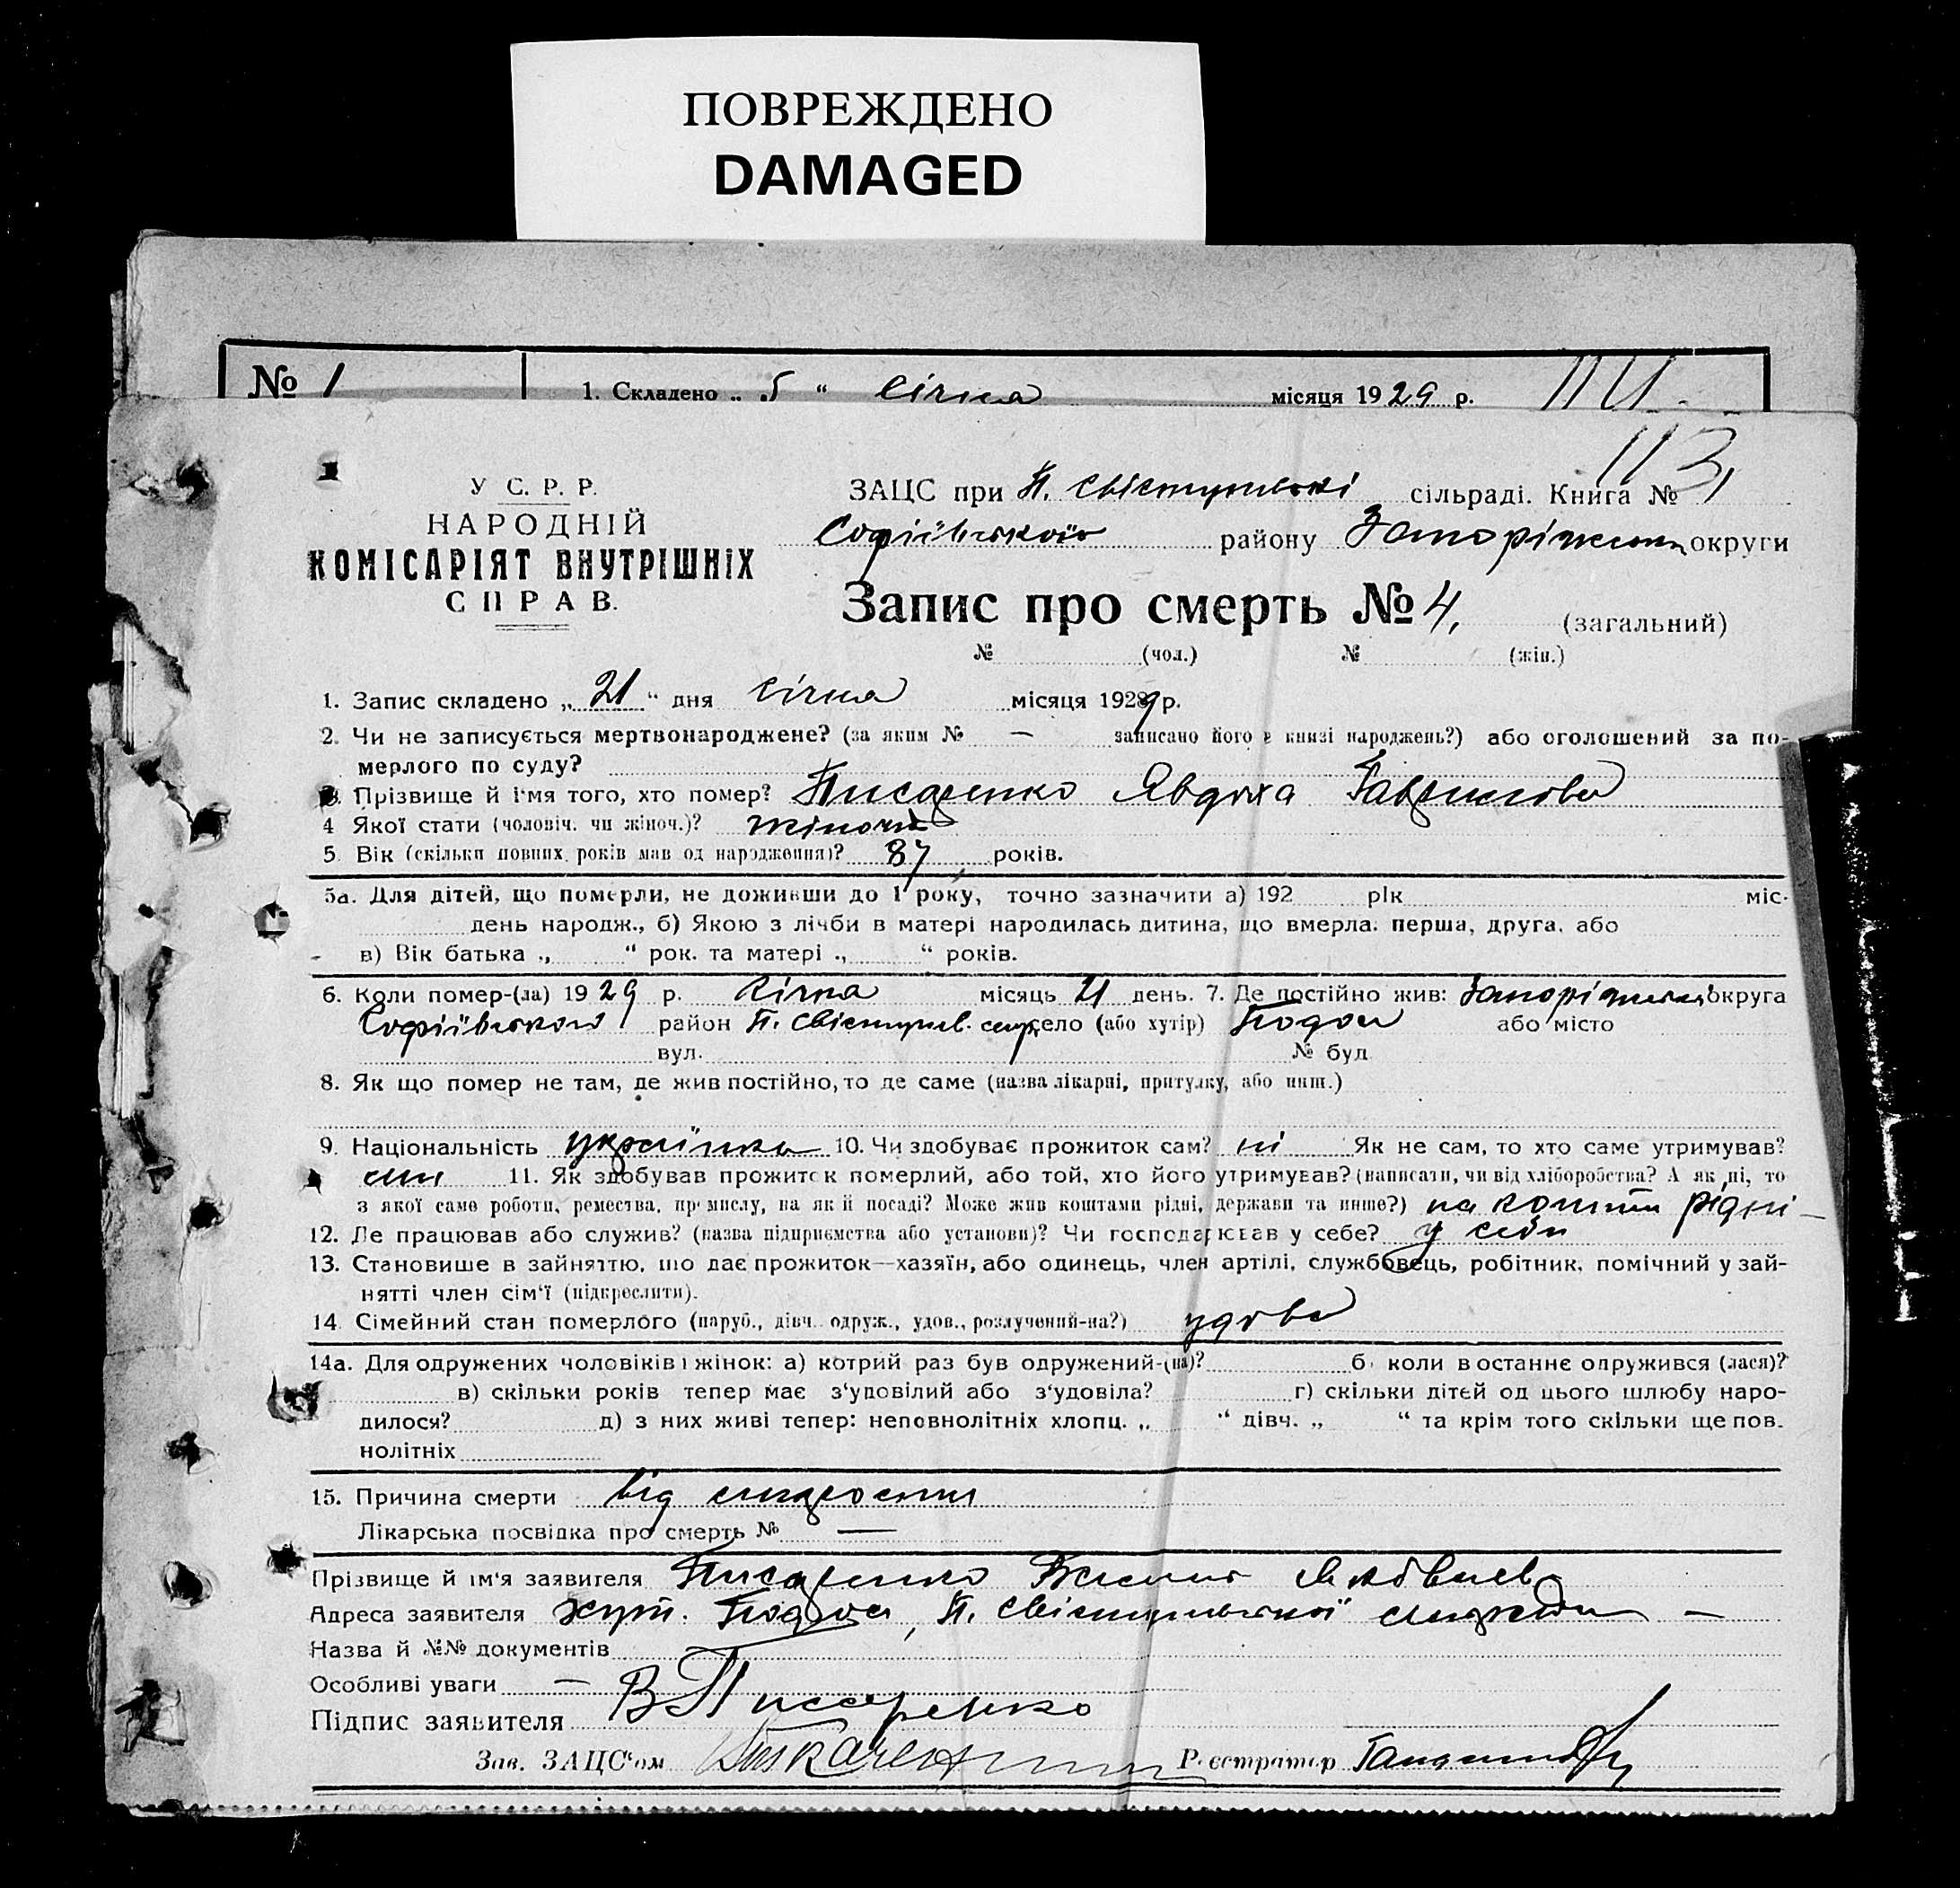 ПОВРЕЖДЕНО
DAMAGED
№ 1 1. Складено „ 5 “ січня місяця 1929 р.
113
У С. Р. Р.
НАРОДНІЙ
КОМІСАРІЯТ ВНУТРІШНІХ
СПРАВ.
ЗАЦС при П. Свістунівські сільраді. Книга №
Софіївського району Запоріжської округи
Запис про смерть № 4, (загальний)
№ (чол.) № (жін.)
1. Запис складено „ 21 “ дня січня місяця 1929 р.
2. Чи не записується мертвонароджене? (за яким № — записано його в книзі народжень?) або оголошений за по-
мерлого по суду?
3. Прізвище й ім'я того, хто помер? Писаренко Явдоха Гаврилова
4 Якої стати (чоловіч. чи жіноч.)? жіноча
5. Вік (скільки повних років мав од народження)? 87 років.
5а. Для дітей, що померли, не доживши до 1 року, точно зазначити а) 192 рік міс.
день народж., б) Якою з лічби в матері народилась дитина, що вмерла: перша, друга, або
в) Вік батька „ “ рок. та матері „ “ років.
6. Коли помер-(ла) 1929 р. січня місяць 21 день. 7. Де постійно жив: Запоріжська округа
Софіївського район П. Свістунів. село (або хутір) або місто
вул. № буд
8. Як що помер не там, де жив постійно, то де саме (назва лікарні, притулку, або инш.)
9. Національність українка 10. Чи здобуває прожиток сам? ні Як не сам, то хто саме утримував?
син 11. Як здобував прожиток померлий, або той, хто його утримував? (написати, чи від хліборобства? А як ні, то
з якої саме роботи, ремества, промислу, на якій посаді? Може жив коштами рідні, держави та инше?) на кошти рідні —
12. Де працював або служив? (назва підприємства або установи)? Чи господарював у себе? у себе
13. Становище в зайняттю, що дає прожиток—хазяїн, або одинець, член артілі, службовець, робітник, помічний у зай-
нятті член сім'ї (підкреслити).
14. Сімейний стан померлого (паруб., дівч. одруж., удов., розлучений-на?) удова
14а. Для одружених чоловіків і жінок: а) котрий раз був одружений-(на)? б) коли в останнє одружився (лася)?
в) скільки років тепер має з'удовілий або з'удовіла? г) скільки дітей од цього шлюбу наро-
дилося? д) з них живі тепер: неповнолітніх хлопц. „ “ дівч. „ “ та крім того скільки ще пов.
нолітніх
15. Причина смерти від старости
Лікарська посвідка про смерть № —
Прізвище й ім'я заявителя Писаренко Яковлев.
Адреса заявителя хут. П. Свістунівської сільради —
Назва й №№ документів
Особливі уваги —
Підпис заявителя В Писаренко
Зав. ЗАЦС'ом Реєстратор